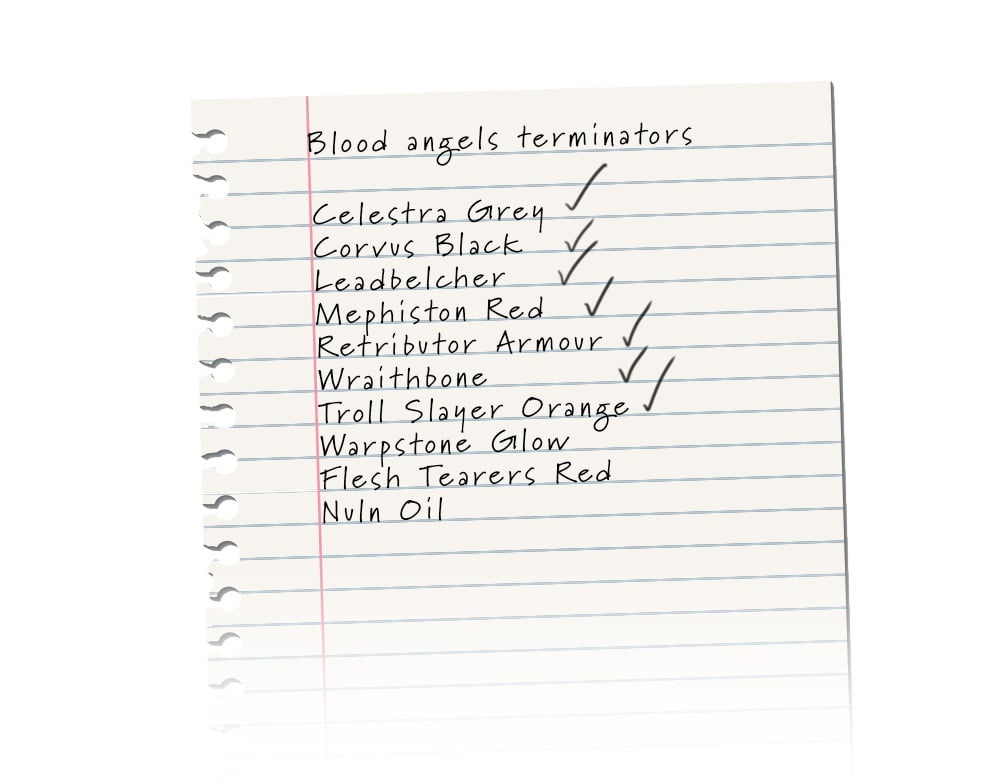 Blood angels terminators
Celestra Grey ✓
Corvus Black ✓
Leadbelcher ✓
Mephiston Red ✓
Retributor Armour ✓
Wraithbone ✓
Troll Slayer Orange ✓
Warpstone Glow
Flesh Tearers Red
Nuln Oil